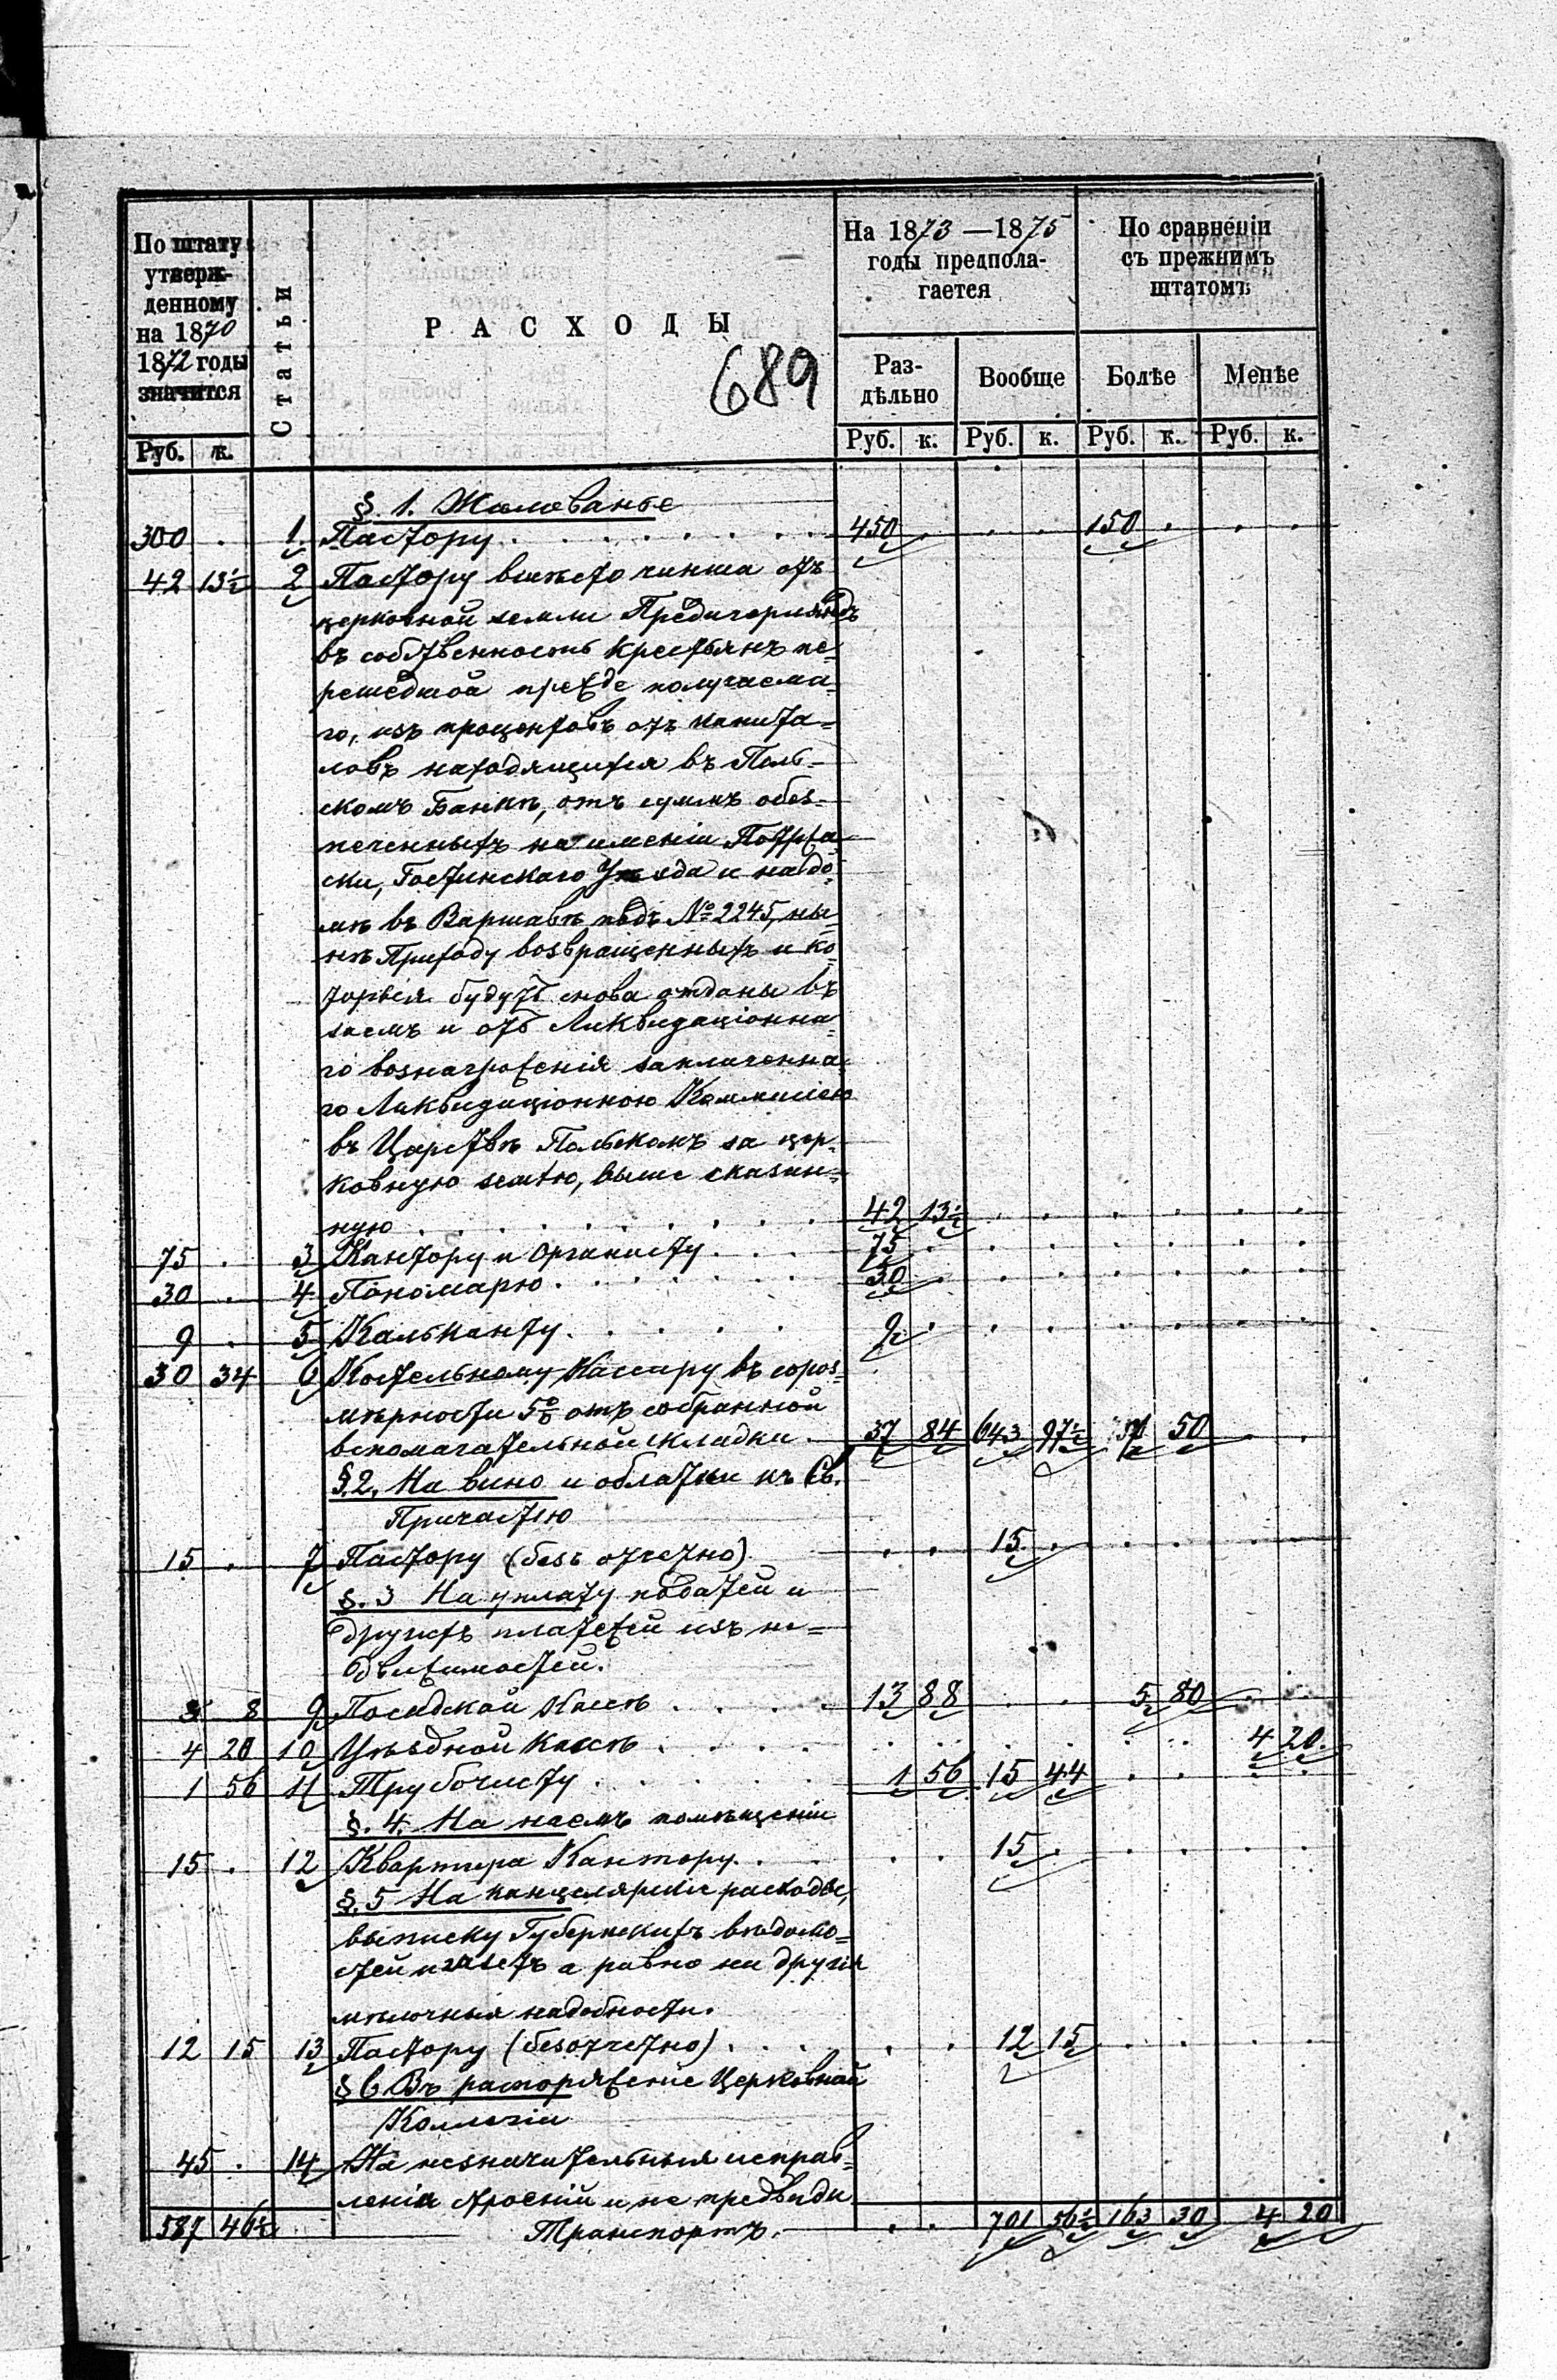 По штату утвержденному на 1870 1872 годы значится
Статьи
РАСХОДЫ
689
На 1873 — 1875 годы предполагается
По сравненіи съ прежнимъ штатомъ
Раздѣльно Вообще Болѣе Менѣе
Руб. к. Руб. к. Руб. к. Руб. к. Руб. к.
§. 1. Жалованье
300 . 1. Пастору . . . . . . . 450 . . . 150 . . .
42 13½ 2 Пастору вмѣсто чинша отъ
церковной земли
въ собственность крестьянъ пе=
решедшой прежде получаема=
го, изъ процентовъ отъ капита=
ловъ находящихся въ Поль=
скомъ Банкѣ, отъ суммъ обез=
печенныхъ на имѣніи
ски, Гостинскаго Уѣзда и на до=
мѣ въ Варшавѣ подъ № 2245, ны=
нѣ Приходу возвращенныхъ и ко=
торыя будутъ снова отданы въ
заемъ и отъ Ликвидаціонна=
го вознагражденія заплаченна=
го Ликвидаціонною Коммисіею
въ Царствѣ Польскомъ за цер=
ковную землю, выше сказан=
ную . . . . . . . . 42 13½ . . . . . .
75 . 3 Кантору и Органисту . . . 75 . . . . . . .
30 . 4 Пономарю . . . . . . 30 . . . . . . .
9 . 5 Кальканту . . . . . 9 . . . . . . .
30 34 6 Костельному Кассиру въ сораз=
мѣрности 5% отъ собранной
вспомагательной складки . 37 84 643 97½ 7 50 . .
§. 2. На вино и облатки къ Св.
Причастію
15 . 7 Пастору (безъ отчетно) . . 15 . . . . .
§. 3 На уплату податей и
другихъ платежей изъ не=
движимостей.
8 8 9 Посадской Кассѣ . . . . 13 88 . . 5 80 . .
4 20 10 Уѣздной Кассѣ . . . . . . . . . . 4 20
1 56 11 Трубочисту . . . . . 1 56 15 44 . . . .
§. 4. На наемъ помѣщеніи
15 . 12 Квартира Кантору . . . . 15 . . . . .
§. 5 На канцелярскіе расходы,
выписку Губернскихъ вѣдомо=
стей и газетъ а равно на другія
мелочныя надобности.
12 15 13 Пастору (безотчетно) . . . . . 12 15 . . . .
§ 6 Въ распоряженіе Церковной
Коллегіи
45 . 14 На незначительныя исправ=
ленія строеній и не предвиди
587 46½ Транспортъ . . . 701 56½ 163 30 4 20